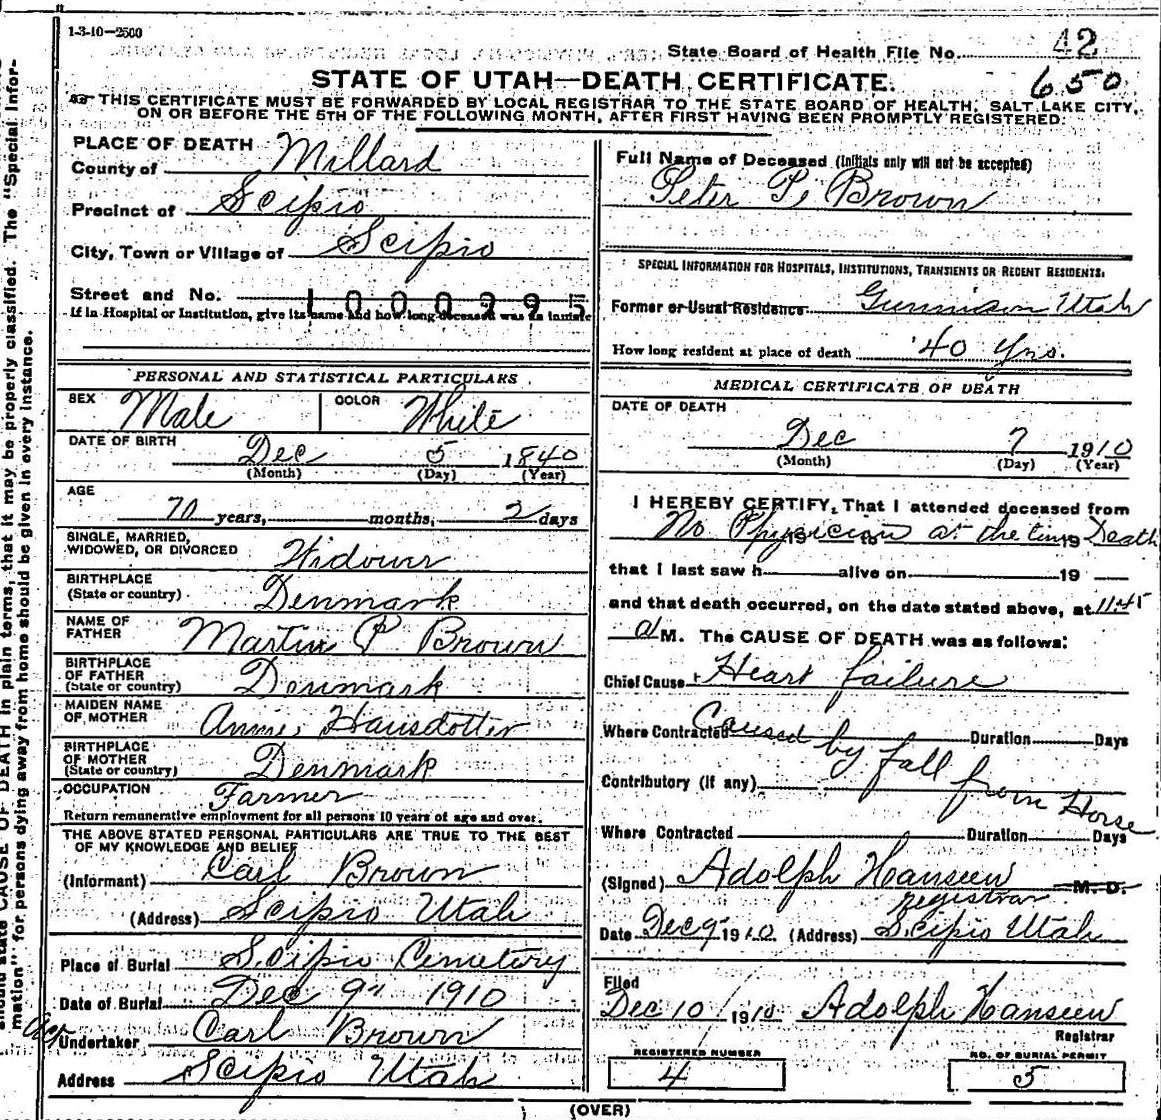 1-3-10—2500
State Board of Health File No. 42
650
STATE OF UTAH—DEATH CERTIFICATE.
THIS CERTIFICATE MUST BE FORWARDED BY LOCAL REGISTRAR TO THE STATE BOARD OF HEALTH, SALT LAKE CITY,
ON OR BEFORE THE 5TH OF THE FOLLOWING MONTH, AFTER FIRST HAVING BEEN PROMPTLY REGISTERED:
PLACE OF DEATH
County of Millard
Precinct of Scipio
City, Town or Village of Scipio
Street and No. 1000995
If in Hospital or Institution, give its name and how long deceased was an inmate
PERSONAL AND STATISTICAL PARTICULARS
SEX Male COLOR White
DATE OF BIRTH Dec 5 1840
(Month) (Day) (Year)
AGE
70 years, months, 2 days
SINGLE, MARRIED,
WIDOWED, OR DIVORCED Widower
BIRTHPLACE
(State or country) Denmark
NAME OF
FATHER Martin P Brown
BIRTHPLACE
OF FATHER
(State or country) Denmark
MAIDEN NAME
OF MOTHER Annie Hansdotter
BIRTHPLACE
OF MOTHER
(State or country) Denmark
OCCUPATION Farmer
Return remunerative employment for all persons 10 years of age and over.
THE ABOVE STATED PERSONAL PARTICULARS ARE TRUE TO THE BEST
OF MY KNOWLEDGE AND BELIEF
(Informant) Carl Brown
(Address) Scipio Utah
Place of Burial Scipio Cemetery
Date of Burial Dec 9" 1910
Undertaker Carl Brown
Address Scipio Utah
Full Name of Deceased (Initials only will not be accepted)
Peter P. Brown
SPECIAL INFORMATION FOR HOSPITALS, INSTITUTIONS, TRANSIENTS OR RECENT RESIDENTS:
Former or Usual Residence Gunnison Utah
How long resident at place of death 40 Yrs.
MEDICAL CERTIFICATE OF DEATH
DATE OF DEATH
Dec 7 1910
(Month) (Day) (Year)
I HEREBY CERTIFY, That I attended deceased from
No Physician at the time Death
that I last saw h alive on 19
and that death occurred, on the date stated above, at 11:45
a M. The CAUSE OF DEATH was as follows:
Chief Cause Heart failure
Where Contracted Caused Duration Days
by fall from Horse
Contributory (if any)
Where Contracted Duration Days
(Signed) Adolph Hanseen M.D.
registrar
Date Dec 9 1910 (Address) Scipio Utah
Filed
Dec 10 1910 Adolph Hanseen
Registrar
REGISTERED NUMBER
4
NO. OF BURIAL PERMIT
5
(OVER)
should state CAUSE OF DEATH in plain terms, that it may be properly classified. The "Special Infor-
mation" for persons dying away from home should be given in every instance.